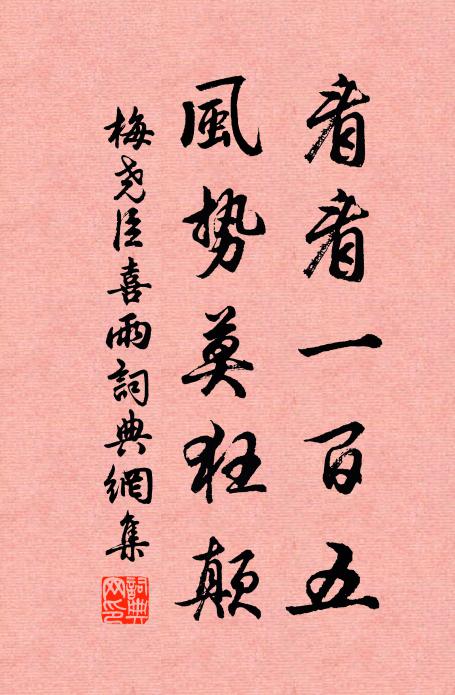 看看一百五
風勢莫狂顛
梅堯臣喜雨詞典網集
詞典網印